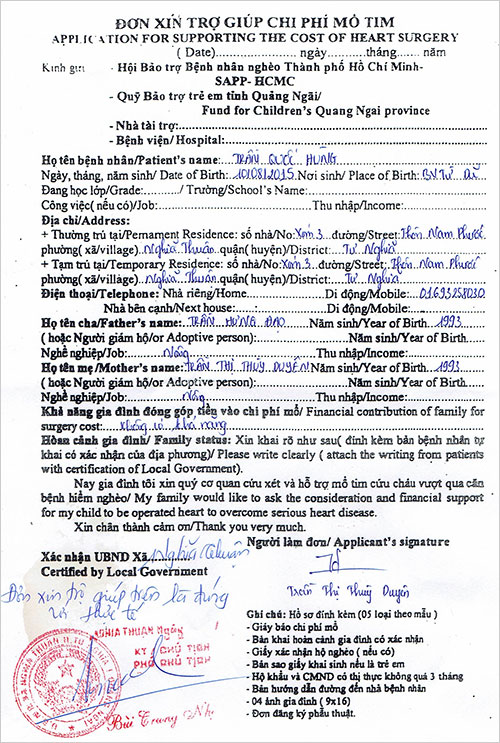 ĐƠN XIN TRỢ GIÚP CHI PHÍ MỔ TIM
APPLICATION FOR SUPPORTING THE COST OF HEART SURGERY
( Date)..................... ngày.............tháng....... năm
Kính gửi - Hội Bảo trợ Bệnh nhân nghèo Thành phố Hồ Chí Minh-
SAPP- HCMC
- Quỹ Bảo trợ trẻ em tỉnh Quảng Ngãi/
Fund for Children's Quang Ngai province
- Nhà tài trợ:
- Bệnh viện/ Hospital:
Họ tên bệnh nhân/Patient's name: TRẦN QUỐC HÙNG
Ngày, tháng, năm sinh/ Date of Birth: 10/08/2015 Nơi sinh/ Place of Birth: BV. TỪ DŨ
Đang học lớp/Grade:........../ Trường/School's Name:
Công việc( nếu có)/Job:..........Thu nhập/Income:
Địa chỉ/Address:
+ Thường trú tại/Pernament Residence: số nhà/No: Xóm 3 đường/Street: Thôn Nam Phước
phường( xã/village). Nghĩa Thuận quận( huyện)/District: Tư Nghĩa
+ Tạm trú tại/Temporary Residence: số nhà/No: Xóm 3 đường/Street: Thôn Nam Phước
phường( xã/village). Nghĩa Thuận quận( huyện)/District: Tư Nghĩa
Điện thoại/Telephone: Nhà riêng/Home..........Di động/Mobile: 01693258030
Nhà bên cạnh/Next house:..........Di động/Mobile:
Họ tên cha/Father's name: TRẦN HƯNG ĐẠO Năm sinh/Year of Birth 1993
( hoặc Người giám hộ/or Adoptive person):..........Năm sinh/Year of Birth
Nghề nghiệp/Job: Nông Thu nhập/Income:
Họ tên mẹ/Mother's name: TRẦN THỊ THÚY DUYÊN Năm sinh/Year of Birth 1993
( hoặc Người giám hộ/or Adoptive person):..........Năm sinh/Year of Birth
Nghề nghiệp/Job: Nông Thu nhập/Income:
Khả năng gia đình đóng góp tiền vào chi phí mổ/ Financial contribution of family for
surgery cost: Không có khả năng
Hoàn cảnh gia đình/ Family status: Xin khai rõ như sau( đính kèm bản bệnh nhân tự
khai có xác nhận của địa phương)/ Please write clearly ( attach the writing from patients
with certification of Local Government).
Nay gia đình tôi xin quý cơ quan cứu xét và hỗ trợ mổ tim cứu cháu vượt qua căn
bệnh hiểm nghèo/ My family would like to ask the consideration and financial support
for my child to be operated heart to overcome serious heart disease.
Xin chân thành cảm ơn/Thank you very much.
Người làm đơn/ Applicant's signature
Xác nhận UBND Xã Nghĩa Thuận
Certified by Local Government
Trần Thị Thúy Duyên
Đơn xin trợ giúp trên là đúng
với thực tế
NGHĨA THUẬN Ngày
KT CHỦ TỊCH
PHÓ CHỦ TỊCH
Bùi Trung
Ghi chú: Hồ sơ đính kèm (05 loại theo mẫu )
- Giấy báo chi phí mổ
- Bản khai hoàn cảnh gia đình có xác nhận
- Giấy xác nhận hộ nghèo ( nếu có)
- Bản sao giấy khai sinh nếu là trẻ em
- Hộ khẩu và CMND có thị thực không quá 3 tháng
- Bản hướng dẫn đường đến nhà bệnh nhân
- 04 ảnh gia đình ( 9x16)
- Đơn đăng ký phẫu thuật.